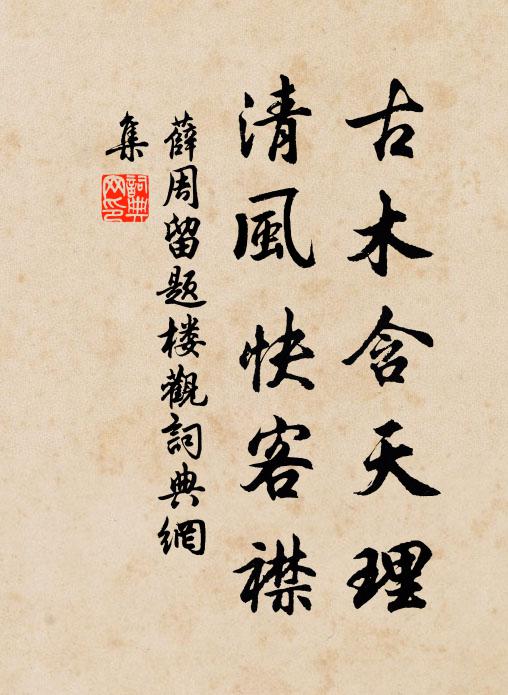 古木含天理
清風快客襟
薛周留題楼觀詞典網
集
詞典
网印